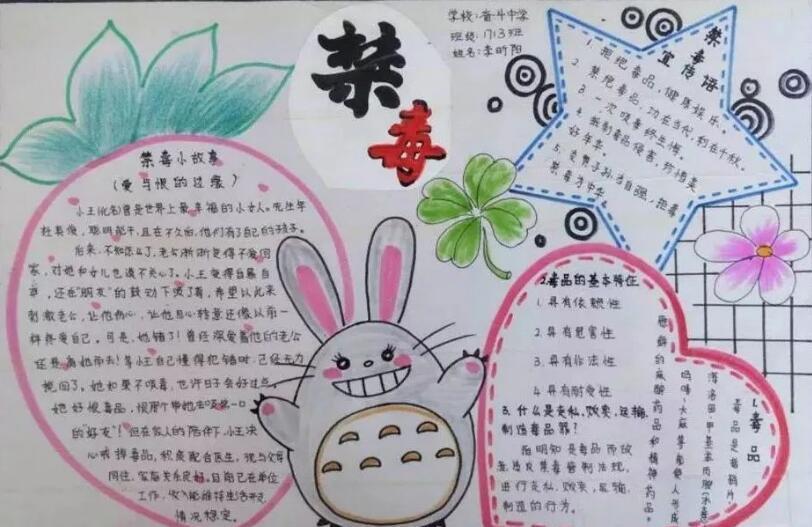 学校：奋斗中学
班级：1713班
姓名：李昕阳
禁毒
禁毒小故事
（爱与恨的边缘）
小王(化名)曾是世界上最幸福的小女人。先生年
轻英俊，聪明能干，且在不久后，他们有了自己的孩子。
后来，不知怎么了，老公渐渐变得不爱回
家，对她和女儿也漠不关心了。小王觉得自暴自
弃，还在“朋友”的鼓动下吸了毒，希望以此来
刺激老公，让他伤心，让他回心转意还像以前一
样疼爱自己。可是，她错了！曾经深爱着她的老公
还是离她而去！等小王自己懂得犯错时，已经无力
挽回了。她如果不吸毒，也许日子会好过点。
她好恨毒品，恨那个带她去吸第一口
的“好友”！但在家人的陪伴下，小王决
心戒掉毒品，积极配合医生，现与父母
同住，家庭关系良好。目前已在单位
工作，收入能维持生活开支
情况稳定。
禁毒
宣传语
1. 拒绝毒品，健康娱乐。
2. 禁绝毒品，功在当代，利在千秋。
3. 一次吸毒终生悔。
4. 抵制毒品侵害，珍惜美
好年华。
5. 炎黄子孙当自强，拒毒
禁毒为中华。
1. 毒品
毒品是指鸦片、
海洛因、甲基苯丙胺(冰毒)
吗啡、大麻
麻醉药品和精神药品
2. 毒品的基本特征
1. 具有依赖性
2. 具有危害性
3. 具有非法性
4. 具有耐受性
3. 什么是走私、贩卖、运输、
制造毒品罪？
指明知是毒品而故
意违反禁毒管制法规，
进行走私、贩卖、运输、
制造的行为。